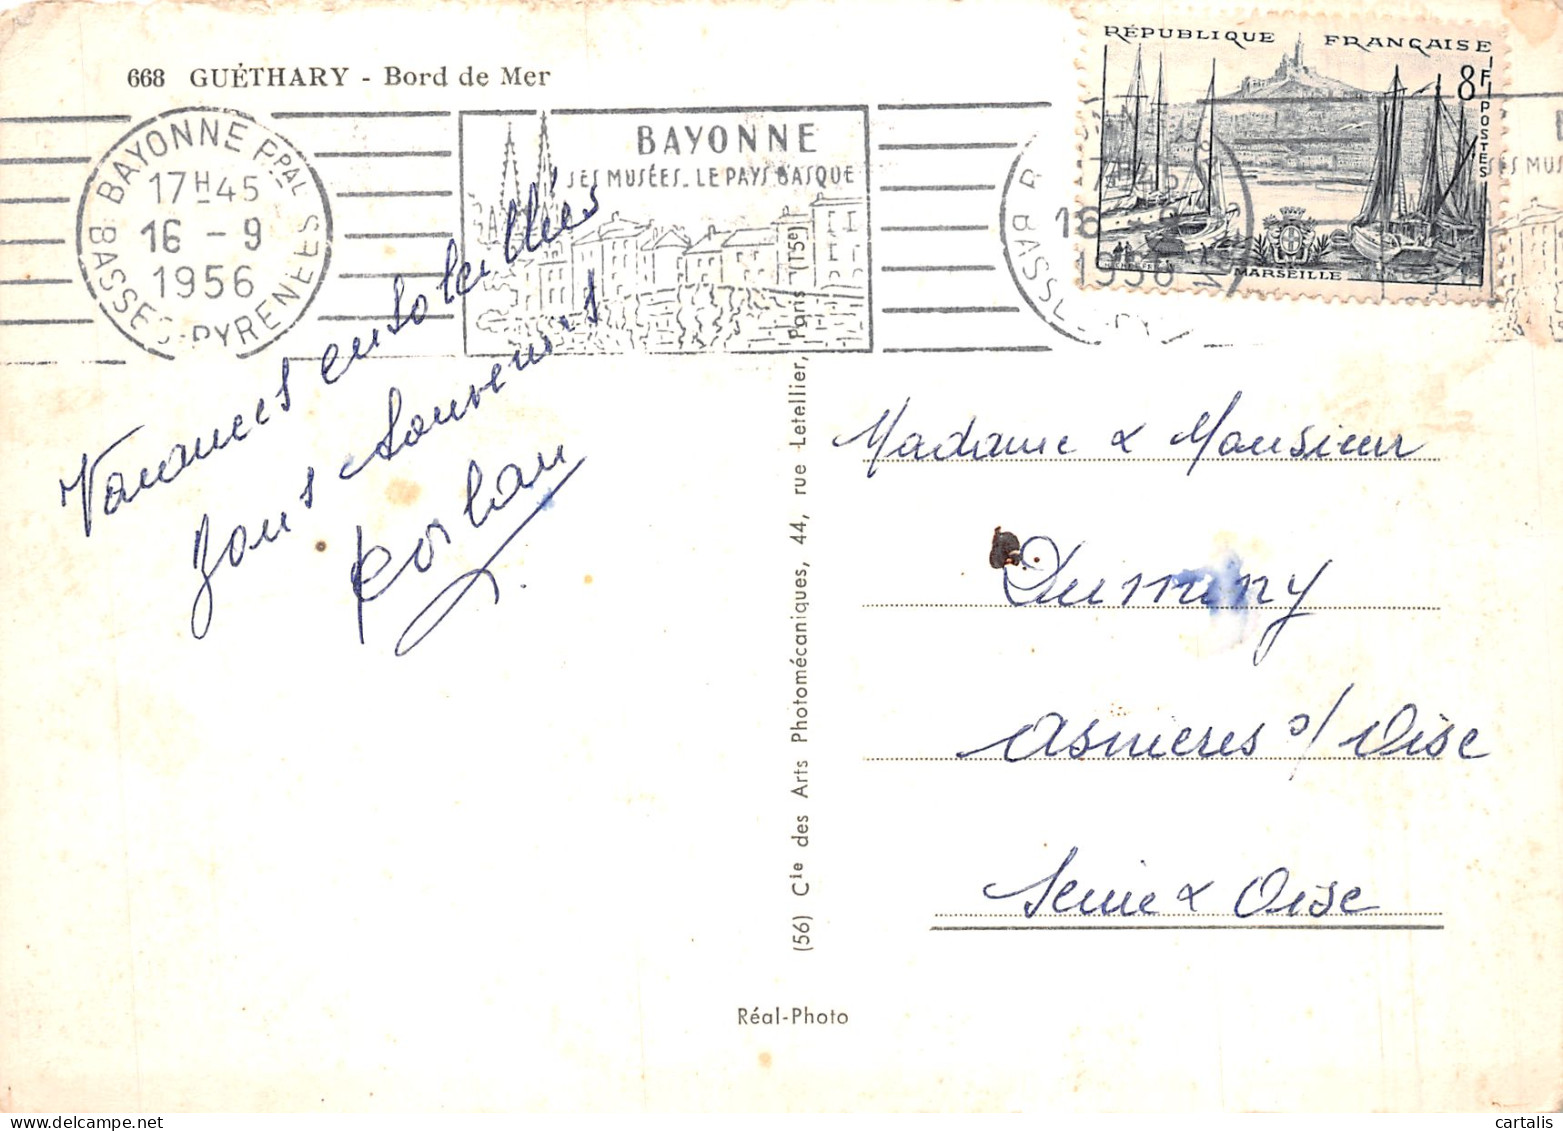 668 GUÉTHARY - Bord de Mer
BAYONNE PPAL
17H45
16 - 9
1956
BASSES-PYRENEES
BAYONNE
SES MUSÉES_LE PAYS BASQUE
RÉPUBLIQUE FRANÇAISE
8F
POSTES
MARSEILLE
17H45
16 - 9
1956
Vacances ensoleillées
bons souvenirs
Madame & Monsieur
Dumény
Asnieres s/ Oise
Seine & Oise
(56) Cie des Arts Photomécaniques, 44, rue Letellier, Paris (15e)
Réal-Photo
cartalis